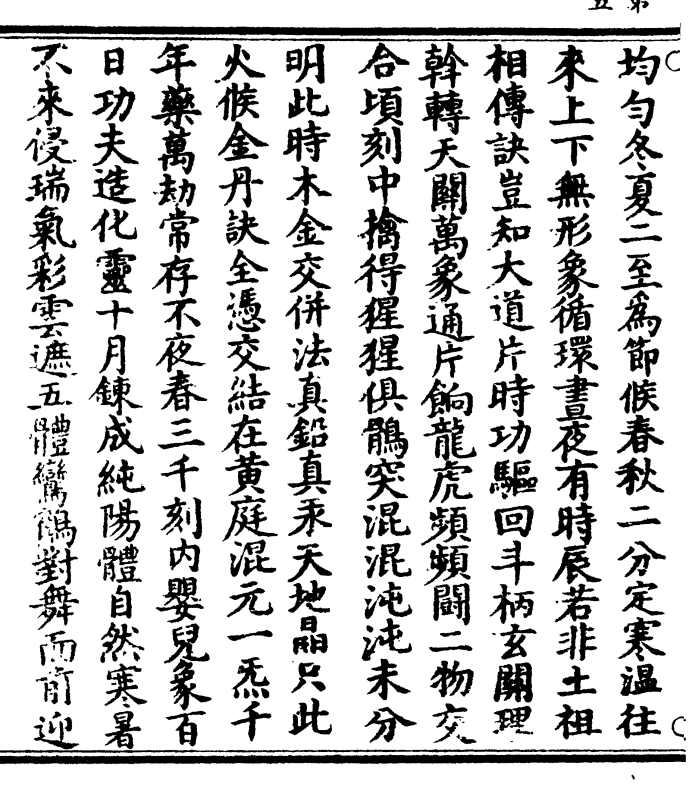 均勻冬夏二至為節候春秋二分定寒溫往
來上下無形象循環晝夜有時辰若非土祖
相傳訣豈知大道片時功驅回斗柄玄關理
斡轉天關萬象通片餉龍虎頻頻鬪二物交
合頃刻中擒得猩猩俱鶻突混混沌沌未分
明此時木金交併法真鉛真汞天地晶只此
火候金丹訣全憑交結在黃庭混元一炁千
年藥萬劫常存不夜春三千刻內嬰兒象百
日功夫造化靈十月鍊成純陽體自然寒暑
不來侵瑞氣彩雲遮五體鸞鶴對舞而前迎